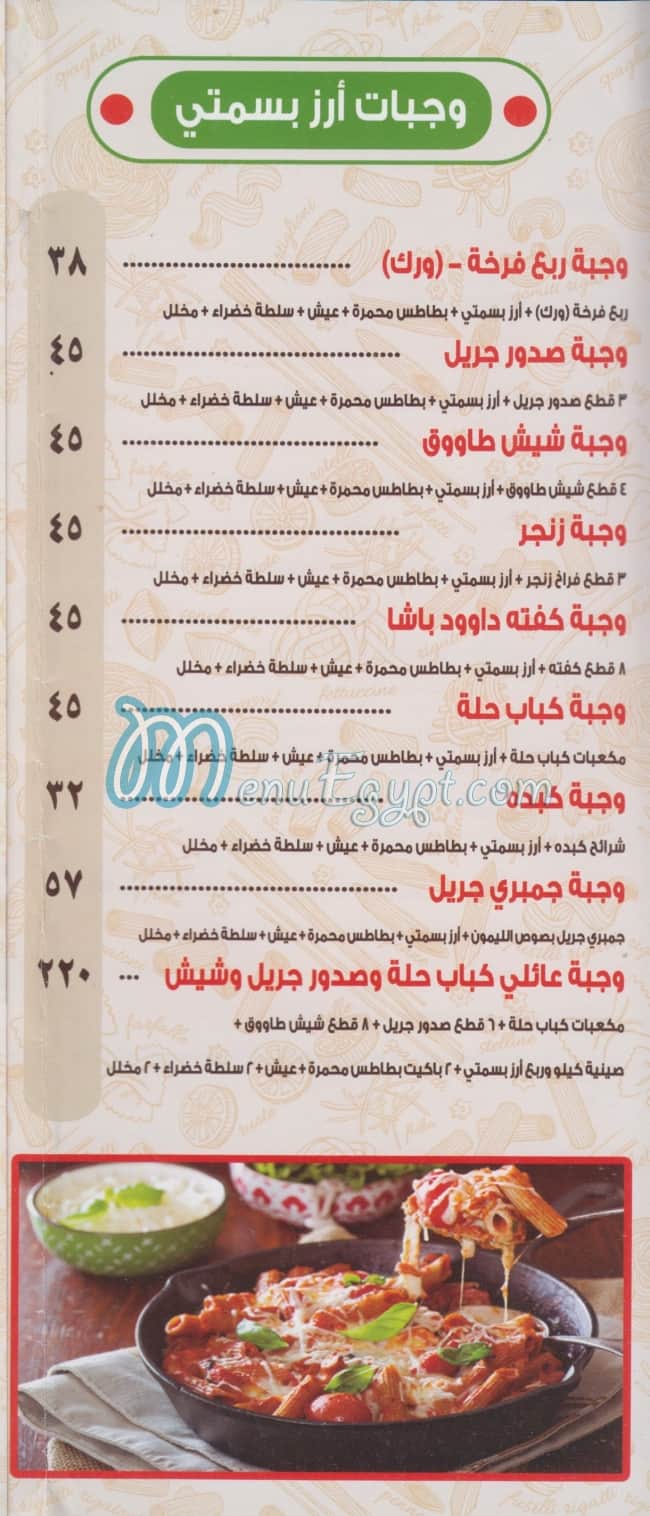 وجبات أرز بسمتي
وجبة ربع فرخة - (ورك) ........ ٣٨
ربع فرخة (ورك) + أرز بسمتي + بطاطس محمرة + عيش + سلطة خضراء + مخلل
وجبة صدور جريل ........ ٤٥
٣ قطع صدور جريل + أرز بسمتي + بطاطس محمرة + عيش + سلطة خضراء + مخلل
وجبة شيش طاووق ........ ٤٥
٤ قطع شيش طاووق + أرز بسمتي + بطاطس محمرة + عيش + سلطة خضراء + مخلل
وجبة زنجر ........ ٤٥
٣ قطع فراخ زنجر + أرز بسمتي + بطاطس محمرة + عيش + سلطة خضراء + مخلل
وجبة كفته داوود باشا ........ ٤٥
٨ قطع كفته + أرز بسمتي + بطاطس محمرة + عيش + سلطة خضراء + مخلل
وجبة كباب حلة ........ ٤٥
مكعبات كباب حلة + أرز بسمتي + بطاطس محمرة + عيش + سلطة خضراء + مخلل
MenuEgypt.com
وجبة كبده ........ ٣٢
شرائح كبده + أرز بسمتي + بطاطس محمرة + عيش + سلطة خضراء + مخلل
وجبة جمبري جريل ........ ٥٧
جمبري جريل بصوص الليمون + أرز بسمتي + بطاطس محمرة + عيش + سلطة خضراء + مخلل
وجبة عائلي كباب حلة وصدور جريل وشيش ... ٢٢٠
مكعبات كباب حلة + ٦ قطع صدور جريل + ٨ قطع شيش طاووق +
صينية كيلو وربع أرز بسمتي + ٢ باكيت بطاطس محمرة + عيش + ٢ سلطة خضراء + ٢ مخلل